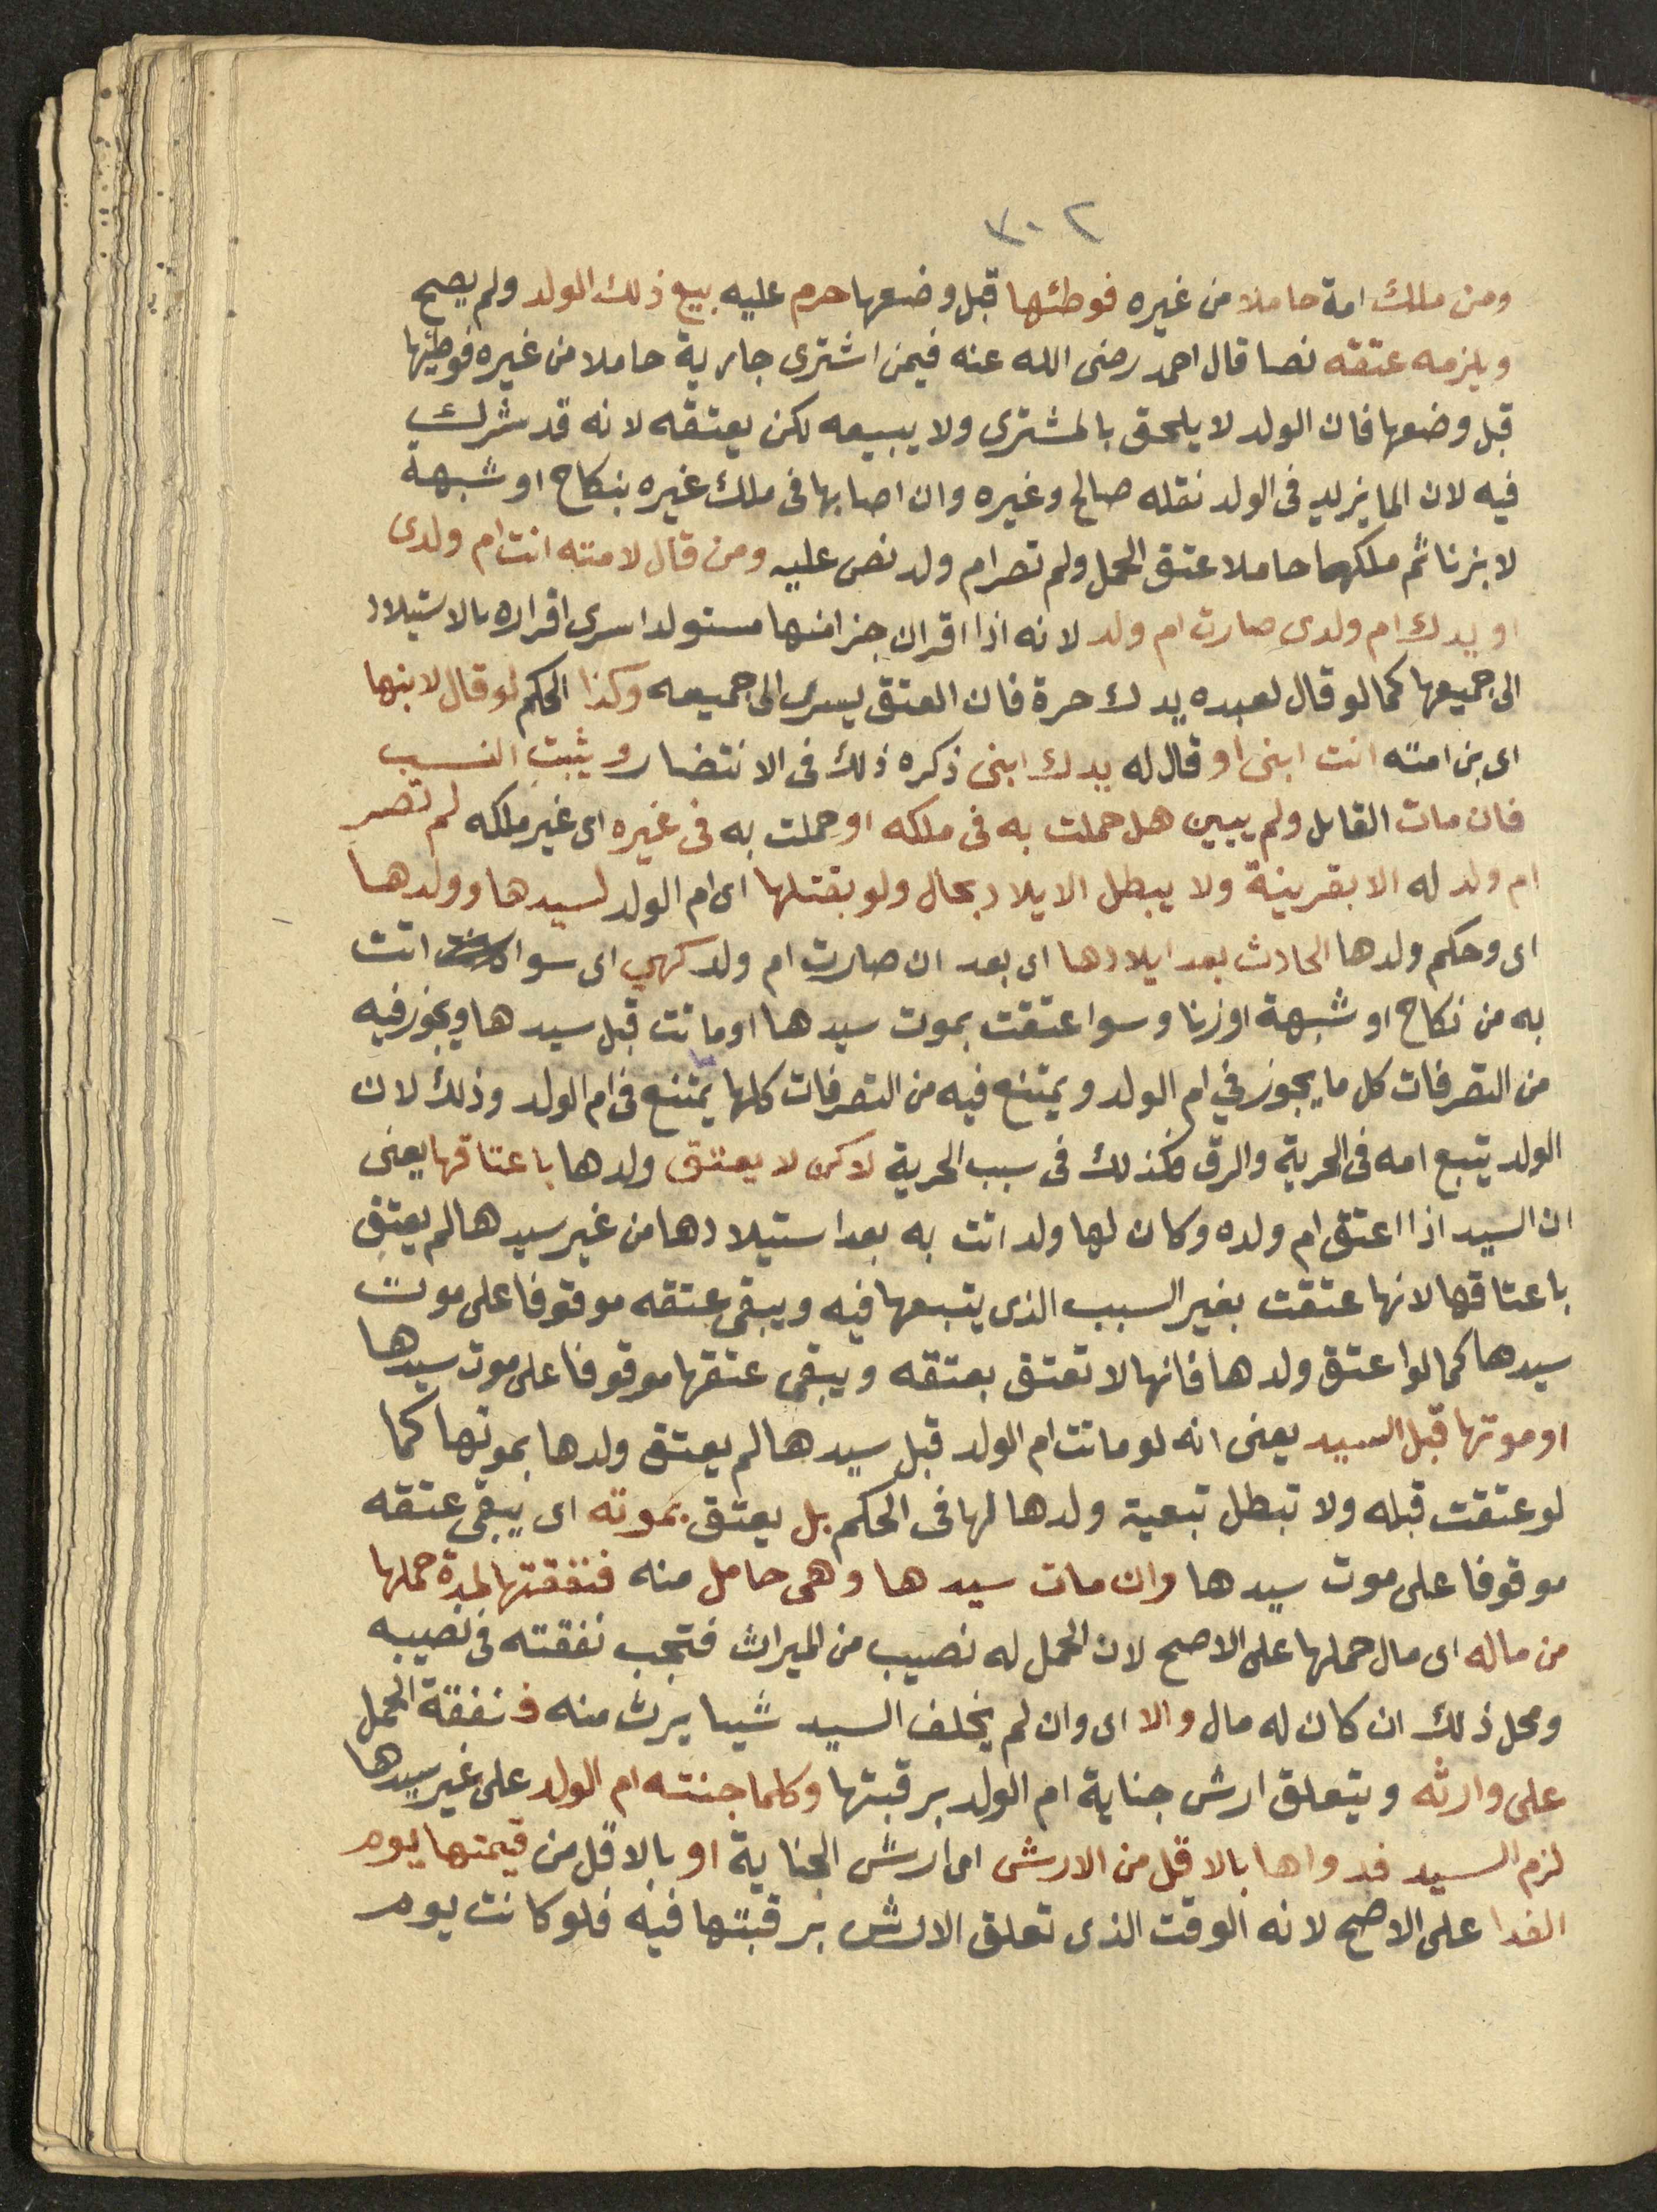 ٣٠٢
ومن ملك امة حاملا من غيره فوطئها قبل وضعها حرم عليه بيع ذلك الولد ولم يصح
ويلزمه عتقه نصا قال احمد رضى الله عنه فيمن اشترى جارية حاملا من غيره فوطئها
قبل وضعها فان الولد لا يلحق بالمشترى ولا يبيعه لكن يعتقه لانه قد شرك
فيه لان الما يزيد فى الولد نقله صالح وغيره وان اصابها فى ملك غيره بنكاح او شبهة
لا بزنا ثم ملكها حاملا عتق الحمل ولم تصر ام ولد نص عليه ومن قال لامته انت ام ولدى
او يدك ام ولدى صارت ام ولد لانه اذا اقر ان جزا منها مستولدا سرى اقراره بالاستيلاد
الى جميعها كما لو قال لعبده يدك حرة فان العتق يسرى الى جميعه وكذا الحكم لو قال لابنها
اى بن امته انت ابنى او قال له يدك ابنى ذكره ذلك فى الانتضار ويثبت النسب
فان مات القايل ولم يبين هل حملت به فى ملكه او حملت به فى غيره اى غير ملكه لم تصر
ام ولد له الا بقرينة ولا يبطل الايلاد بحال ولو بقتلها اى ام الولد لسيدها وولدها
اى وحكم ولدها الحادث بعد ايلادها اى بعد ان صارت ام ولد كهي اى سوا اتت
به من نكاح او شبهة او زنا وسوا عتقت بموت سيدها او ماتت قبل سيدها ويجوز فيه
من التصرفات كل ما يجوز في ام الولد ويمتنع فيه من التصرفات كلها يمتنع فى ام الولد وذلك لان
الولد يتبع امه فى الحرية والرق فكذلك فى سبب الحرية لاكن لا يعتق ولدها باعتاقها يعنى
ان السيد اذا اعتق ام ولده وكان لها ولد اتت به بعد استيلادها من غير سيدها لم يعتق
باعتاقها لانها عتقت بغير السبب الذى يتبعها فيه ويبقى عتقه موقوفا على موت
سيدها كما لو اعتق ولدها فانها لا تعتق بعتقه ويبقى عتقها موقوفا على موت سيدها
او موتها قبل السيد يعنى انه لو ماتت ام الولد قبل سيدها لم يعتق ولدها بموتها كما
لو عتقت قبله ولا تبطل تبعية ولدها لها فى الحكم بل يعتق بموته اى يبقى عتقه
موقوفا على موت سيدها وان مات سيدها وهى حامل منه فنفقتها لمدة حملها
من ماله اى مال حملها على الاصح لان الحمل له نصيب من الميراث فتجب نفقته فى نصيبه
ومحل ذلك ان كان له مال والا اى وان لم يخلف السيد شيا يرث منه فنفقة الحمل
على وارثه ويتعلق ارش جناية ام الولد برقبتها وكلما جنته ام الولد على غير سيدها
لزم السيد فدواها بالاقل من الارش اى ارش الجناية او بالاقل من قيمتها يوم
الفدا على الاصح لانه الوقت الذى تعلق الارش برقبتها فيه فلو كانت يوم